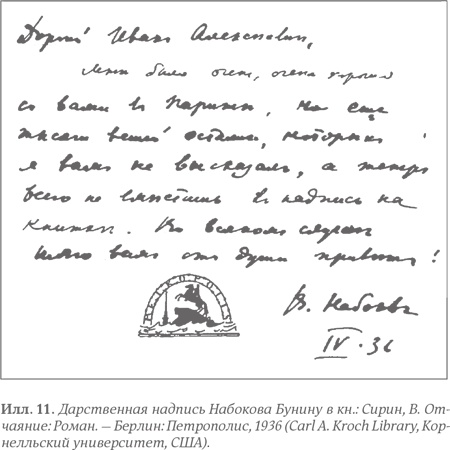 Дорогой Иванъ Алексѣевичъ,
Мнѣ было очень, очень хорошо
съ вами въ Парижѣ, но еще
вещей остались, которыхъ
я вамъ не высказалъ, а теперь
всего не вмѣстишь въ надпись на
книжкѣ. Во всякомъ случаѣ
шлю вамъ отъ души привѣтъ!
ПЕТРОПОЛИС
В. Набоковъ
IV · 36
Илл. 11. Дарственная надпись Набокова Бунину в кн.: Сирин, В. От-
чаяние: Роман. — Берлин: Петрополис, 1936 (Carl A. Kroch Library, Кор-
нелльский университет, США).